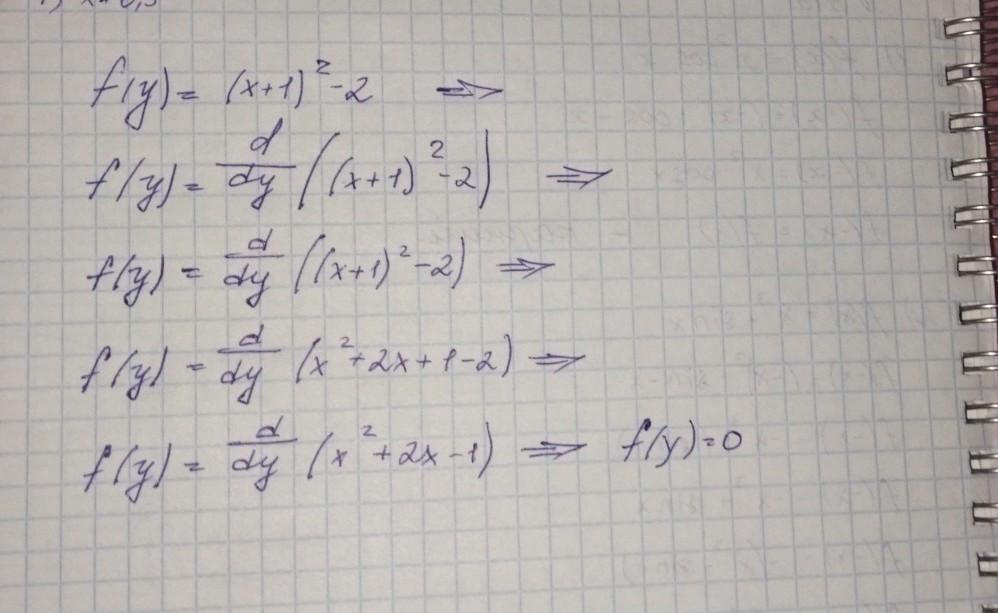 f(y) = (x+1)² - 2 ⇒
f(y) = d/dy ((x+1)² - 2) ⇒
f(y) = d/dy ((x+1)² - 2) ⇒
f(y) = d/dy (x² + 2x + 1 - 2) ⇒
f(y) = d/dy (x² + 2x - 1) ⇒ f(y) = 0